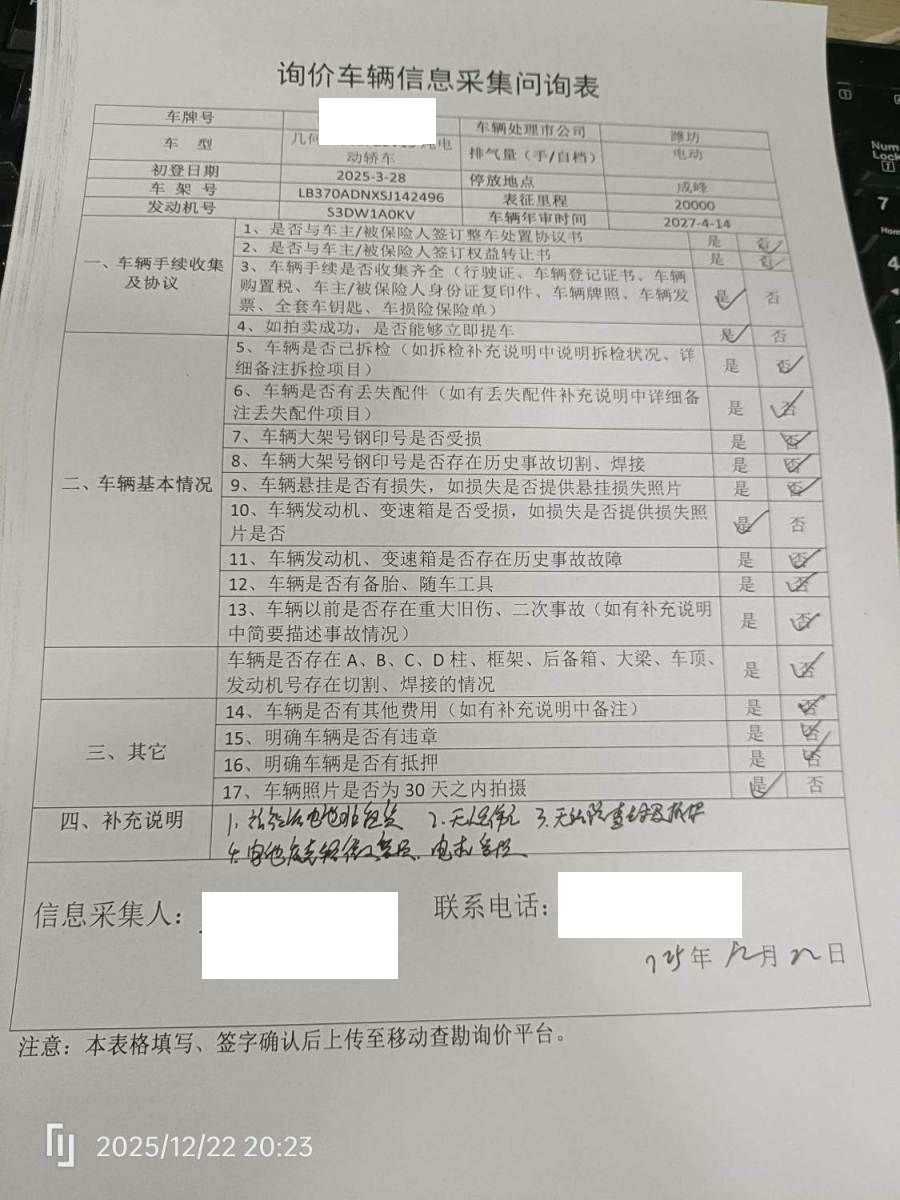 询价车辆信息采集问询表
车牌号 车辆处理市公司 潍坊
车 型 几何 纯电动轿车 排气量（手/自档） 电动
初登日期 2025-3-28 停放地点 成峰
车 架 号 LB370ADNXSJ142496 表征里程 20000
发动机号 S3DW1A0KV 车辆年审时间 2027-4-14
一、车辆手续收集及协议
1、是否与车主/被保险人签订整车处置协议书 是 否
2、是否与车主/被保险人签订权益转让书 是 否
3、车辆手续是否收集齐全（行驶证、车辆登记证书、车辆
购置税、车主/被保险人身份证复印件、车辆牌照、车辆发
票、全套车钥匙、车损险保险单） 是 否
4、如拍卖成功，是否能够立即提车 是 否
二、车辆基本情况
5、车辆是否已拆检（如拆检补充说明中说明拆检状况、详
细备注拆捡项目） 是 否
6、车辆是否有丢失配件（如有丢失配件补充说明中详细备
注丢失配件项目） 是 否
7、车辆大架号钢印号是否受损 是 否
8、车辆大架号钢印号是否存在历史事故切割、焊接 是 否
9、车辆悬挂是否有损失，如损失是否提供悬挂损失照片 是 否
10、车辆发动机、变速箱是否受损，如损失是否提供损失照
片是否 是 否
11、车辆发动机、变速箱是否存在历史事故故障 是 否
12、车辆是否有备胎、随车工具 是 否
13、车辆以前是否存在重大旧伤、二次事故（如有补充说明
中简要描述事故情况） 是 否
车辆是否存在 A、B、C、D 柱、框架、后备箱、大梁、车顶、
发动机号存在切割、焊接的情况 是 否
三、其它
14、车辆是否有其他费用（如有补充说明中备注） 是 否
15、明确车辆是否有违章 是 否
16、明确车辆是否有抵押 是 否
17、车辆照片是否为 30 天之内拍摄 是 否
四、补充说明
信息采集人： 联系电话：
年 月 日
注意：本表格填写、签字确认后上传至移动查勘询价平台。
2025/12/22 20:23
Num
Lock
7
Home
4